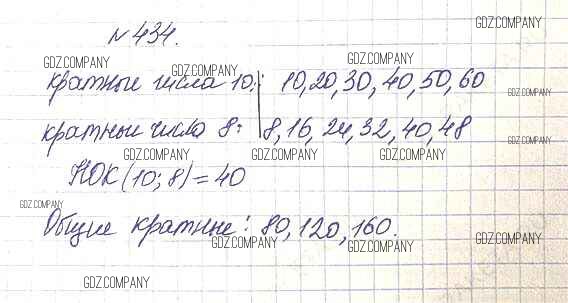 № 434.
кратные числа 10: 10, 20, 30, 40, 50, 60
кратные число 8: 8, 16, 24, 32, 40, 48
НОК (10; 8) = 40
Общие кратные: 80, 120, 160.
GDZ.COMPANY
GDZ.COMPANY
GDZ.COMPANY
GDZ.COMPANY
GDZ.COMPANY
GDZ.COMPANY
GDZ.COMPANY
GDZ.COMPANY
GDZ.COMPANY
GDZ.COMPANY
GDZ.COMPANY
GDZ.COMPANY
GDZ.COMPANY